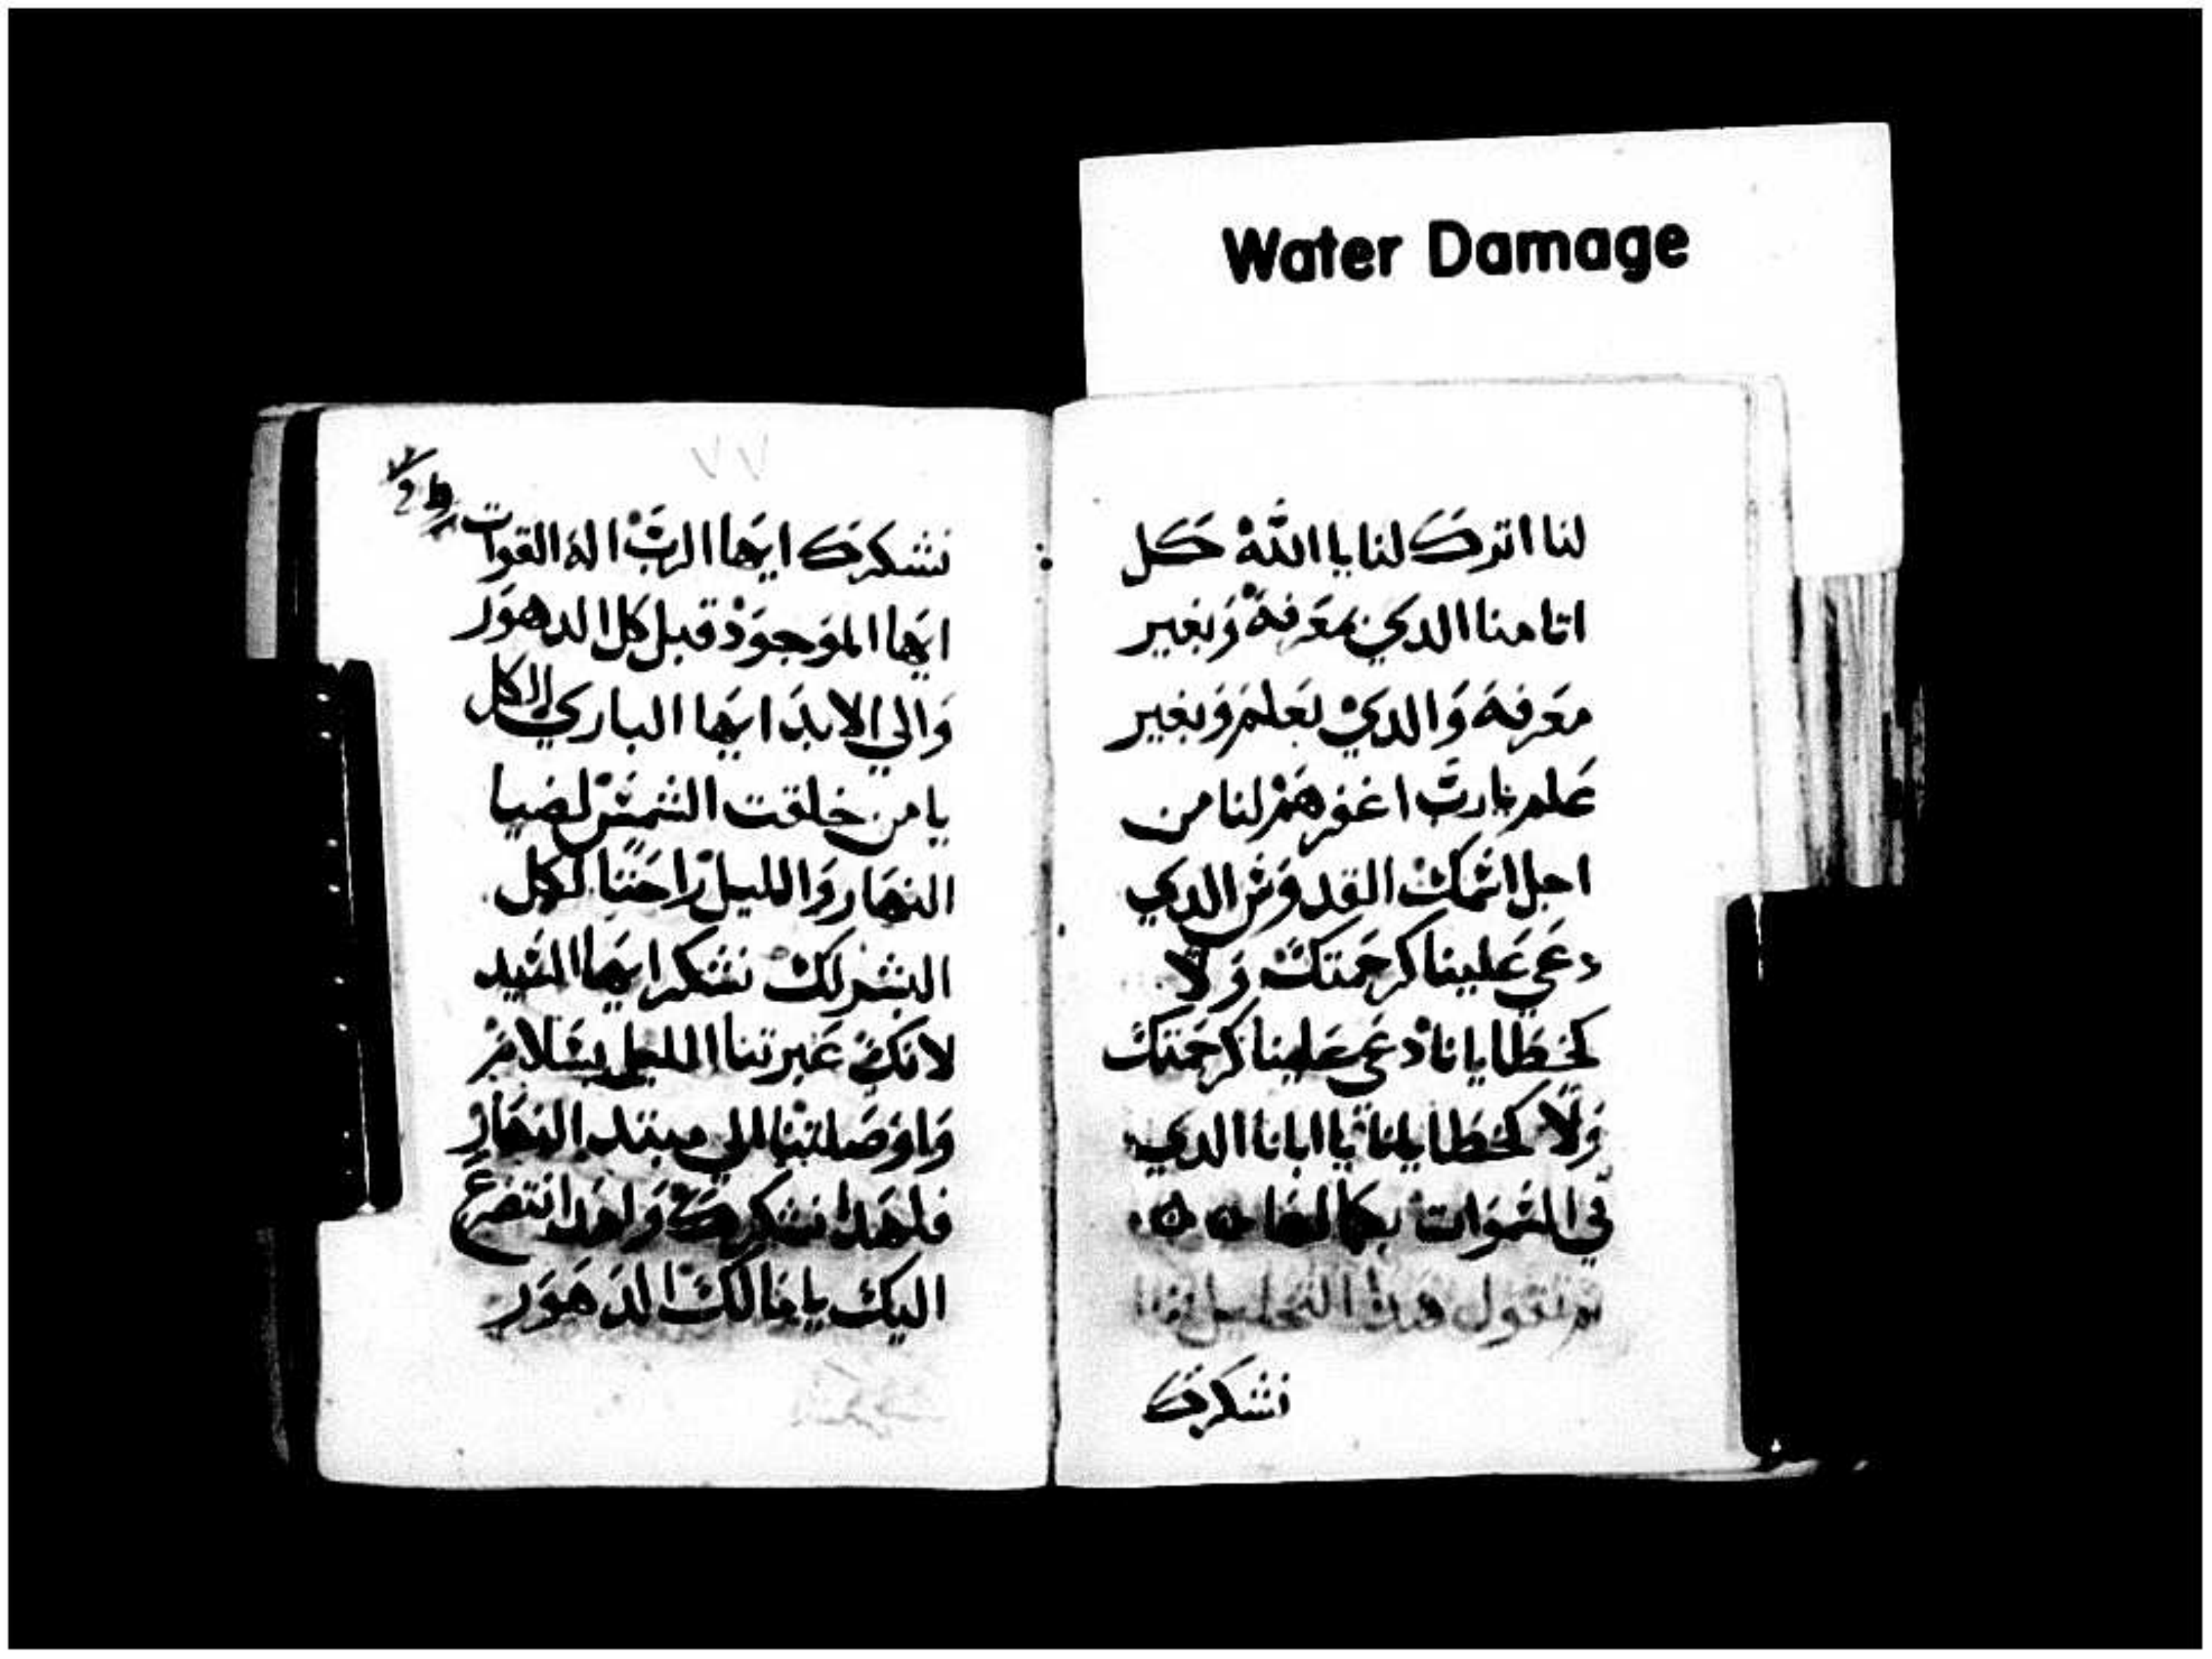 Water Damage
لنا اترك لنا يا الله كل
اتامنا الدي بمعرفة وبغير
معرفة والدي بعلم وبغير
علم يارب اغفرهم لنا من
اجل اسمك القدوس الدي
دعي علينا كرحمتك ولا
كخطايانا دعي علينا كرحمتك
ولا كخطايانا يا ابانا الدي
في السموات بكمالها
تم تقول هدا التحليل
نشكرك
٧٧
نشكرك ايها الرب اله القوات
ايها الموجود قبل كل الدهور
والي الابد ايها الباري الكل
يا من خلقت الشمس لضيا
النهار والليل راحتا لكل
البشر لك نشكر ايها السيد
لانك عبرتنا الليل بسلام
واوصلتنا الي مبتدا النهار
فلهدا نشكرك ولهدا نتضرع
اليك يا مالك الدهور